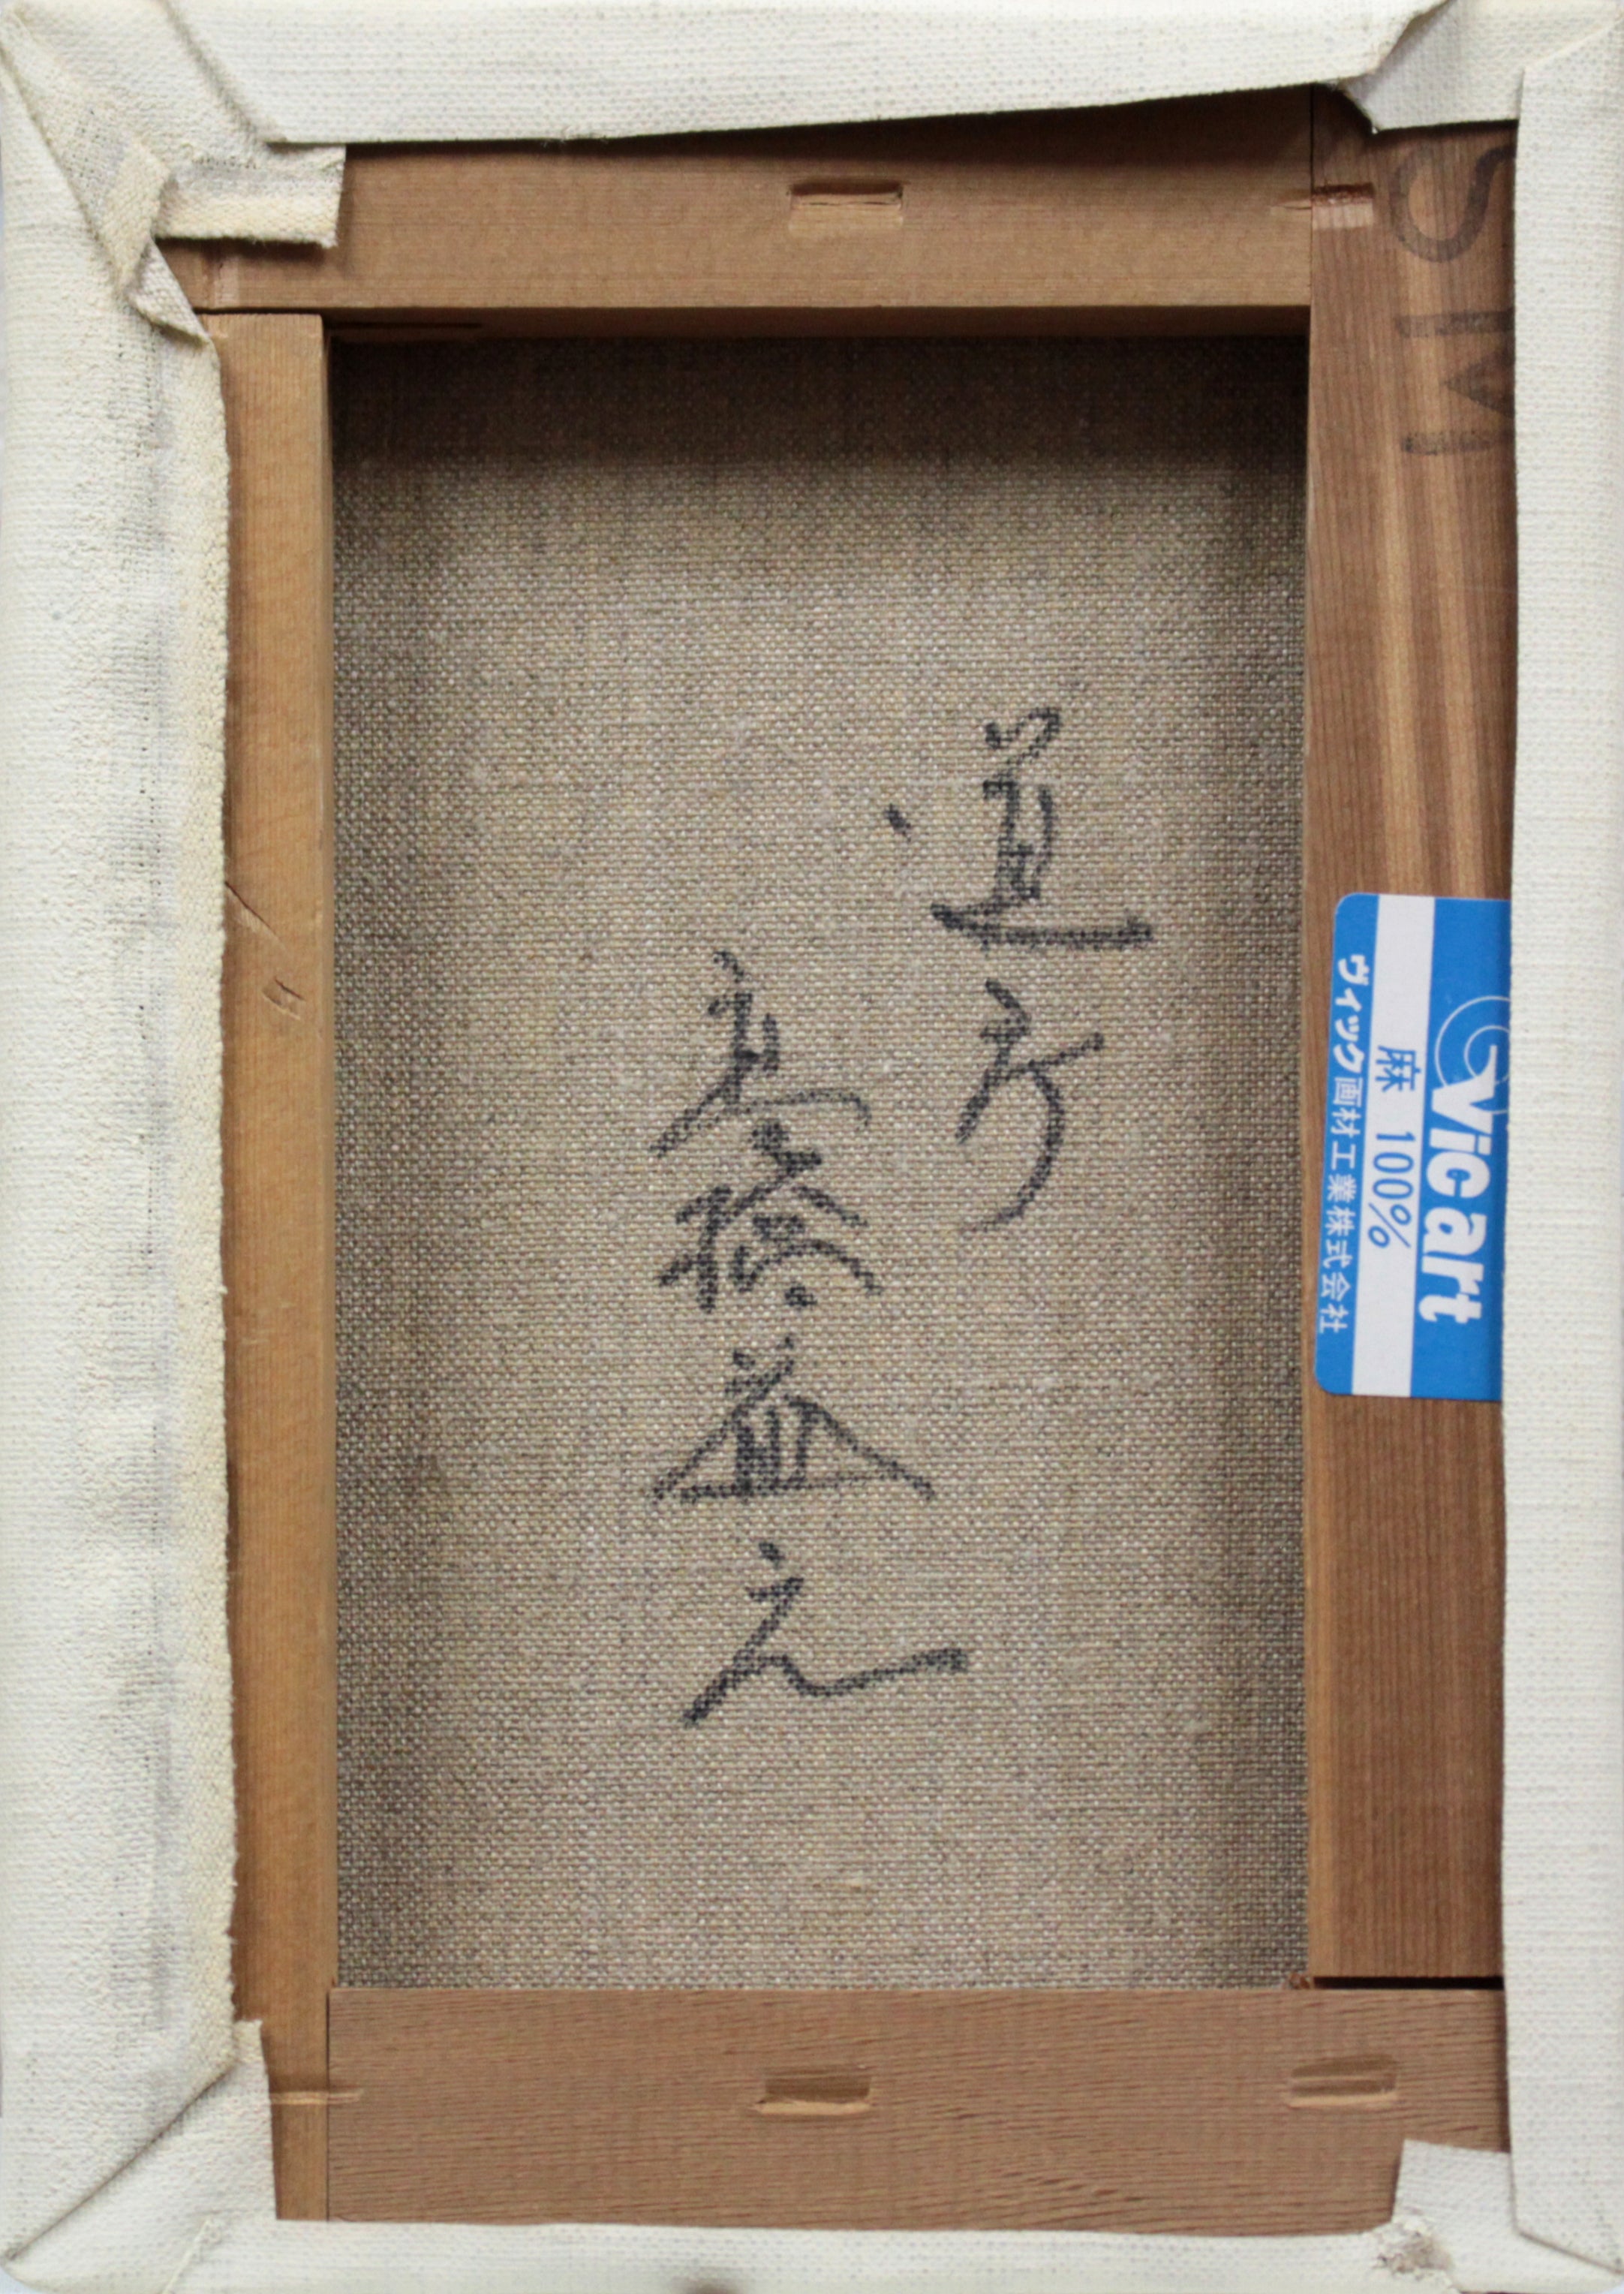 高橋益之
SM
Vicart
麻 100%
ヴィック画材工業株式会社